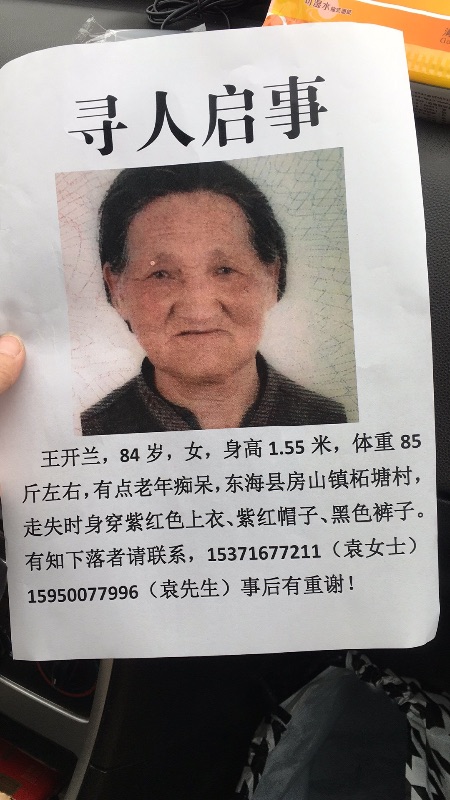 寻人启事
王开兰，84 岁，女，身高 1.55 米，体重 85
斤左右，有点老年痴呆，东海县房山镇柘塘村，
走失时身穿紫红色上衣、紫红帽子、黑色裤子。
有知下落者请联系，15371677211（袁女士）
15950077996（袁先生）事后有重谢！